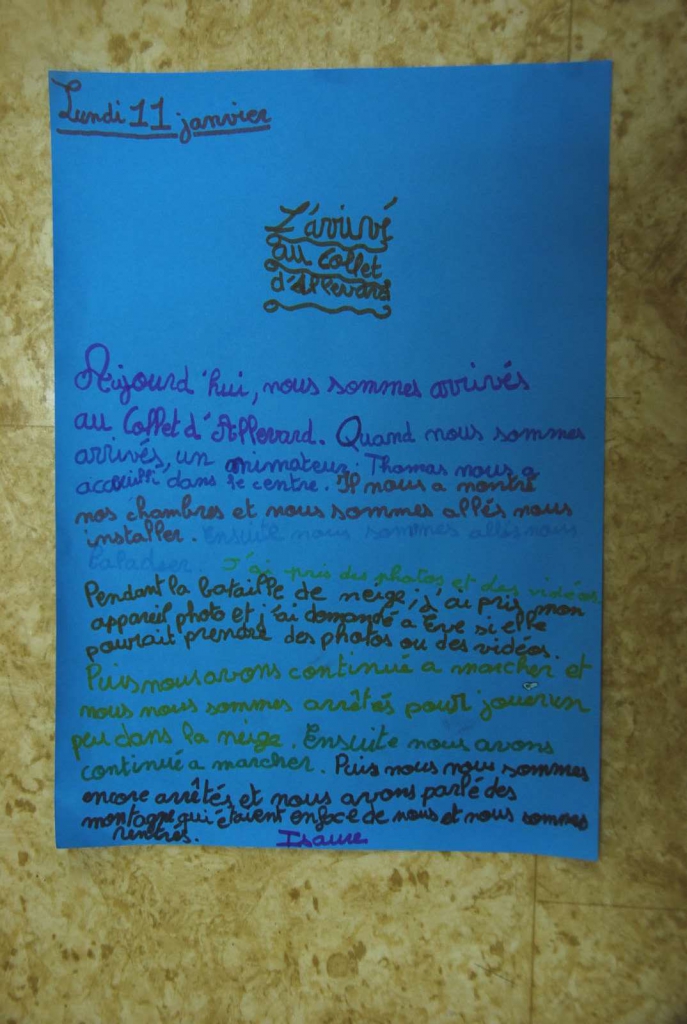 Lundi 11 janvier
L'arrivé
au Collet
d'Allevard
Aujourd'hui, nous sommes arrivés
au Collet d'Allevard. Quand nous sommes
arrivés, un animateur: Thomas nous a
accueilli dans le centre. Il nous a montré
nos chambres et nous sommes allés nous
installer. Ensuite nous sommes allés nous
balader. J'ai pris des photos et des vidéos.
Pendant la bataille de neige, j'ai pris mon
appareil photo et j'ai demandé a Eve si elle
pourait prendre des photos ou des vidéos.
Puis nous avons continué a marcher et
nous nous sommes arrêtés pour jouer un
peu dans la neige. Ensuite nous avons
continué a marcher. Puis nous nous sommes
encore arrêtés et nous avons parlé des
montagne qui étaient en face de nous et nous sommes
rentrés. Isaure